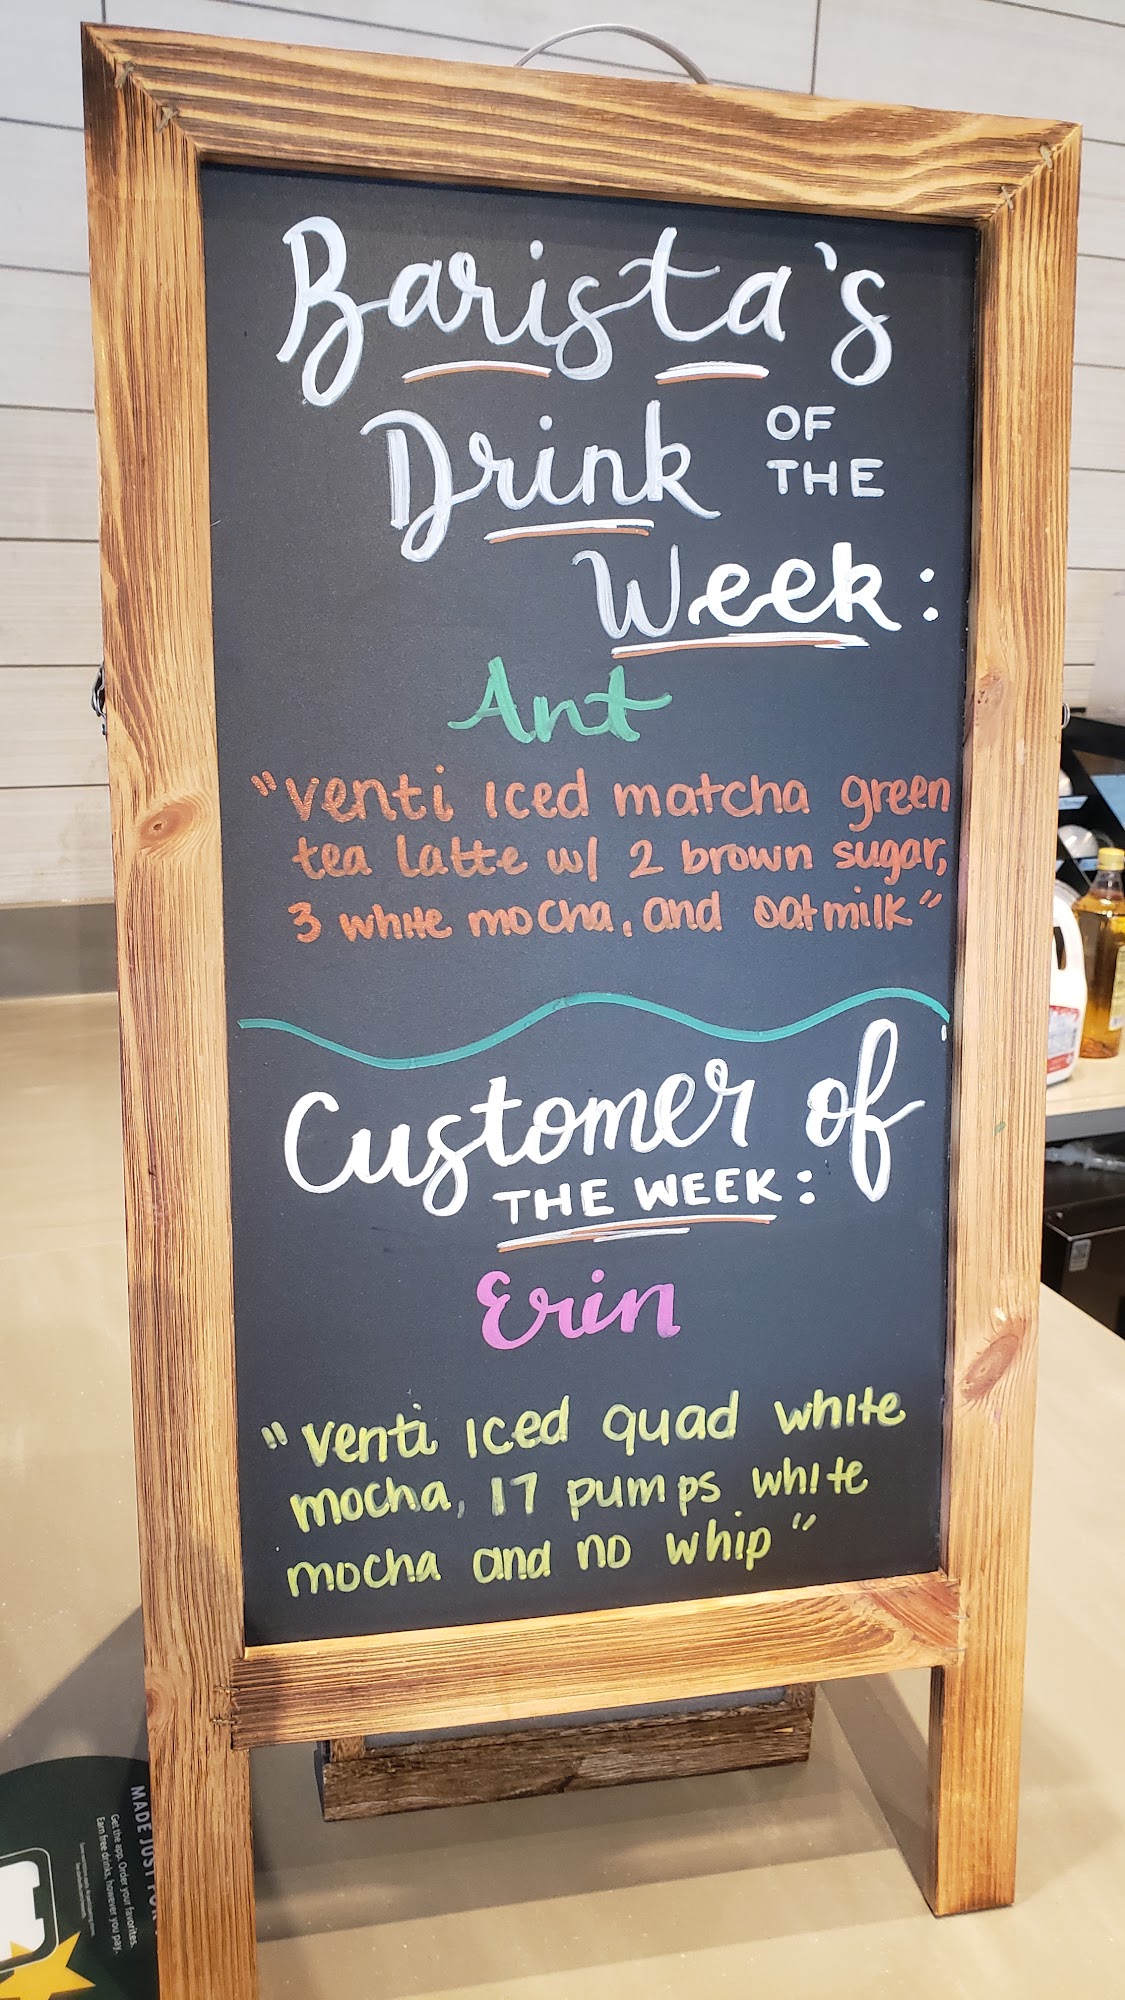 Barista's
Drink OF
THE
Week:
Ant
"venti iced matcha green
tea latte w/ 2 brown sugar,
3 white mocha, and oatmilk"
Customer of
THE WEEK:
Erin
"venti iced quad white
mocha, 17 pumps white
mocha and no whip"
MADE JUST FOR
Get the app. Order your favorites.
Earn free drinks, however you pay.